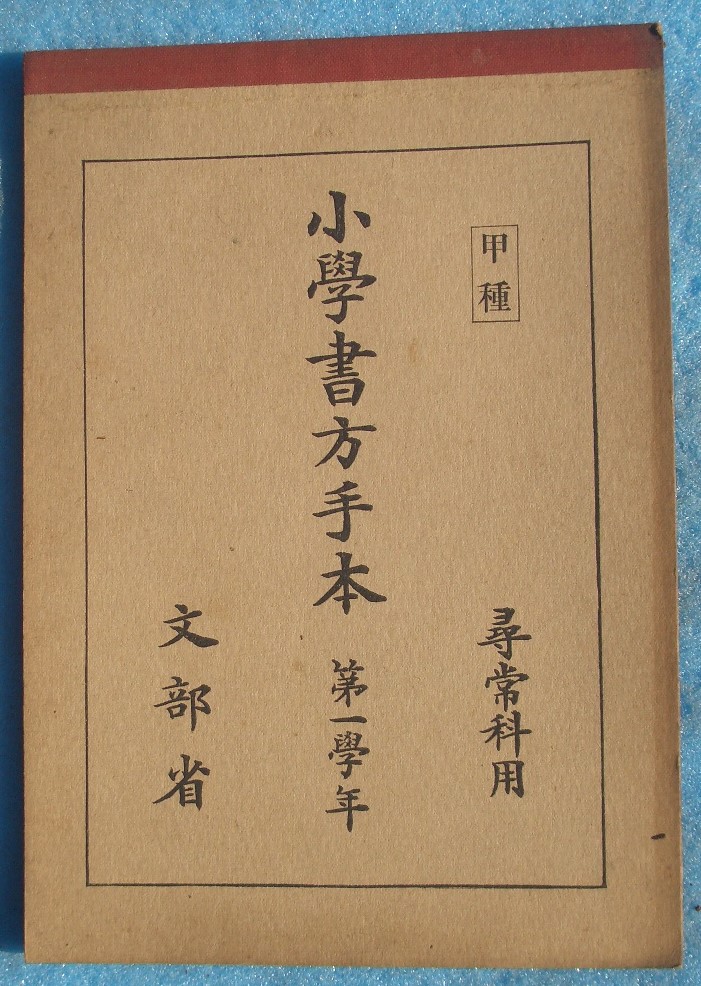 甲種
尋常科用
小學書方手本 第一學年
文部省